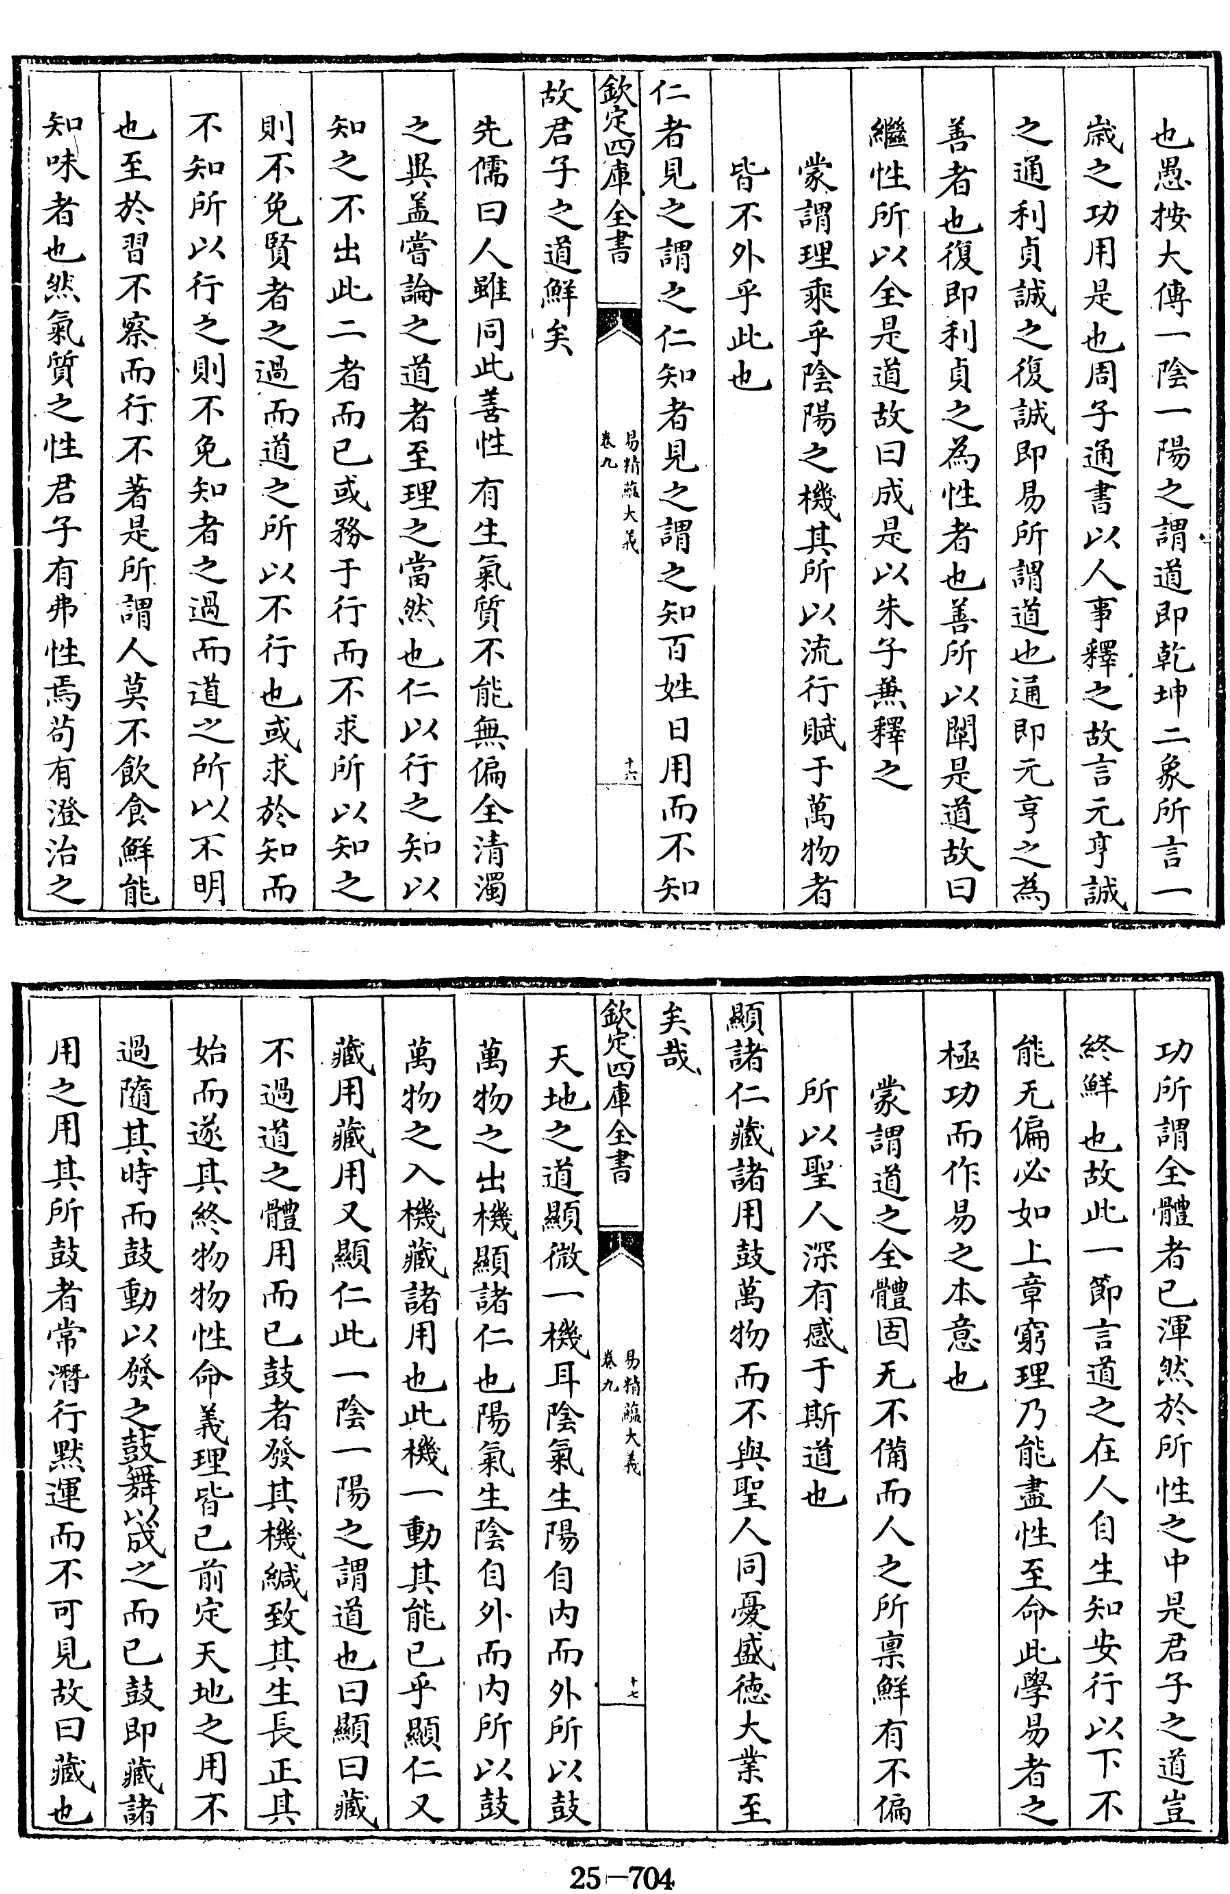 也愚按大傳一陰一陽之謂道即乾坤二象所言一
歲之功用是也周子通書以人事釋之故言元亨誠
之通利貞誠之復誠即易所謂道也通即元亨之為
善者也復即利貞之為性者也善所以闡是道故曰
繼性所以全是道故曰成是以朱子兼釋之
蒙謂理乘乎陰陽之機其所以流行賦于萬物者
皆不外乎此也
仁者見之謂之仁知者見之謂之知百姓日用而不知
欽定四庫全書
易精蘊大義
卷九
十六
故君子之道鮮矣
先儒曰人雖同此善性有生氣質不能無偏全清濁
之異盖嘗論之道者至理之當然也仁以行之知以
知之不出此二者而已或務于行而不求所以知之
則不免賢者之過而道之所以不行也或求於知而
不知所以行之則不免知者之過而道之所以不明
也至於習不察而行不著是所謂人莫不飲食鮮能
知味者也然氣質之性君子有弗性焉苟有澄治之
功所謂全體者已渾然於所性之中是君子之道豈
終鮮也故此一節言道之在人自生知安行以下不
能无偏必如上章窮理乃能盡性至命此學易者之
極功而作易之本意也
蒙謂道之全體固无不備而人之所禀鮮有不偏
所以聖人深有感于斯道也
顯諸仁藏諸用鼓萬物而不與聖人同憂盛德大業至
矣哉
欽定四庫全書
易精蘊大義
卷九
十七
天地之道顯微一機耳陰氣生陽自内而外所以鼓
萬物之出機顯諸仁也陽氣生陰自外而内所以鼓
萬物之入機藏諸用也此機一動其能已乎顯仁又
藏用藏用又顯仁此一陰一陽之謂道也曰顯曰藏
不過道之體用而已鼓者發其機緘致其生長正其
始而遂其終物物性命義理皆已前定天地之用不
過隨其時而鼓動以發之鼓舞以成之而已鼓即藏諸
用之用其所鼓者常潛行默運而不可見故曰藏也
25-704